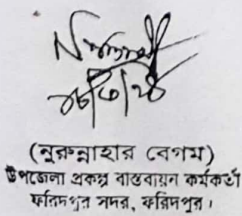 (নুরুন্নাহার বেগম)
উপজেলা প্রকল্প বাস্তবায়ন কর্মকর্তা
ফরিদপুর সদর, ফরিদপুর।